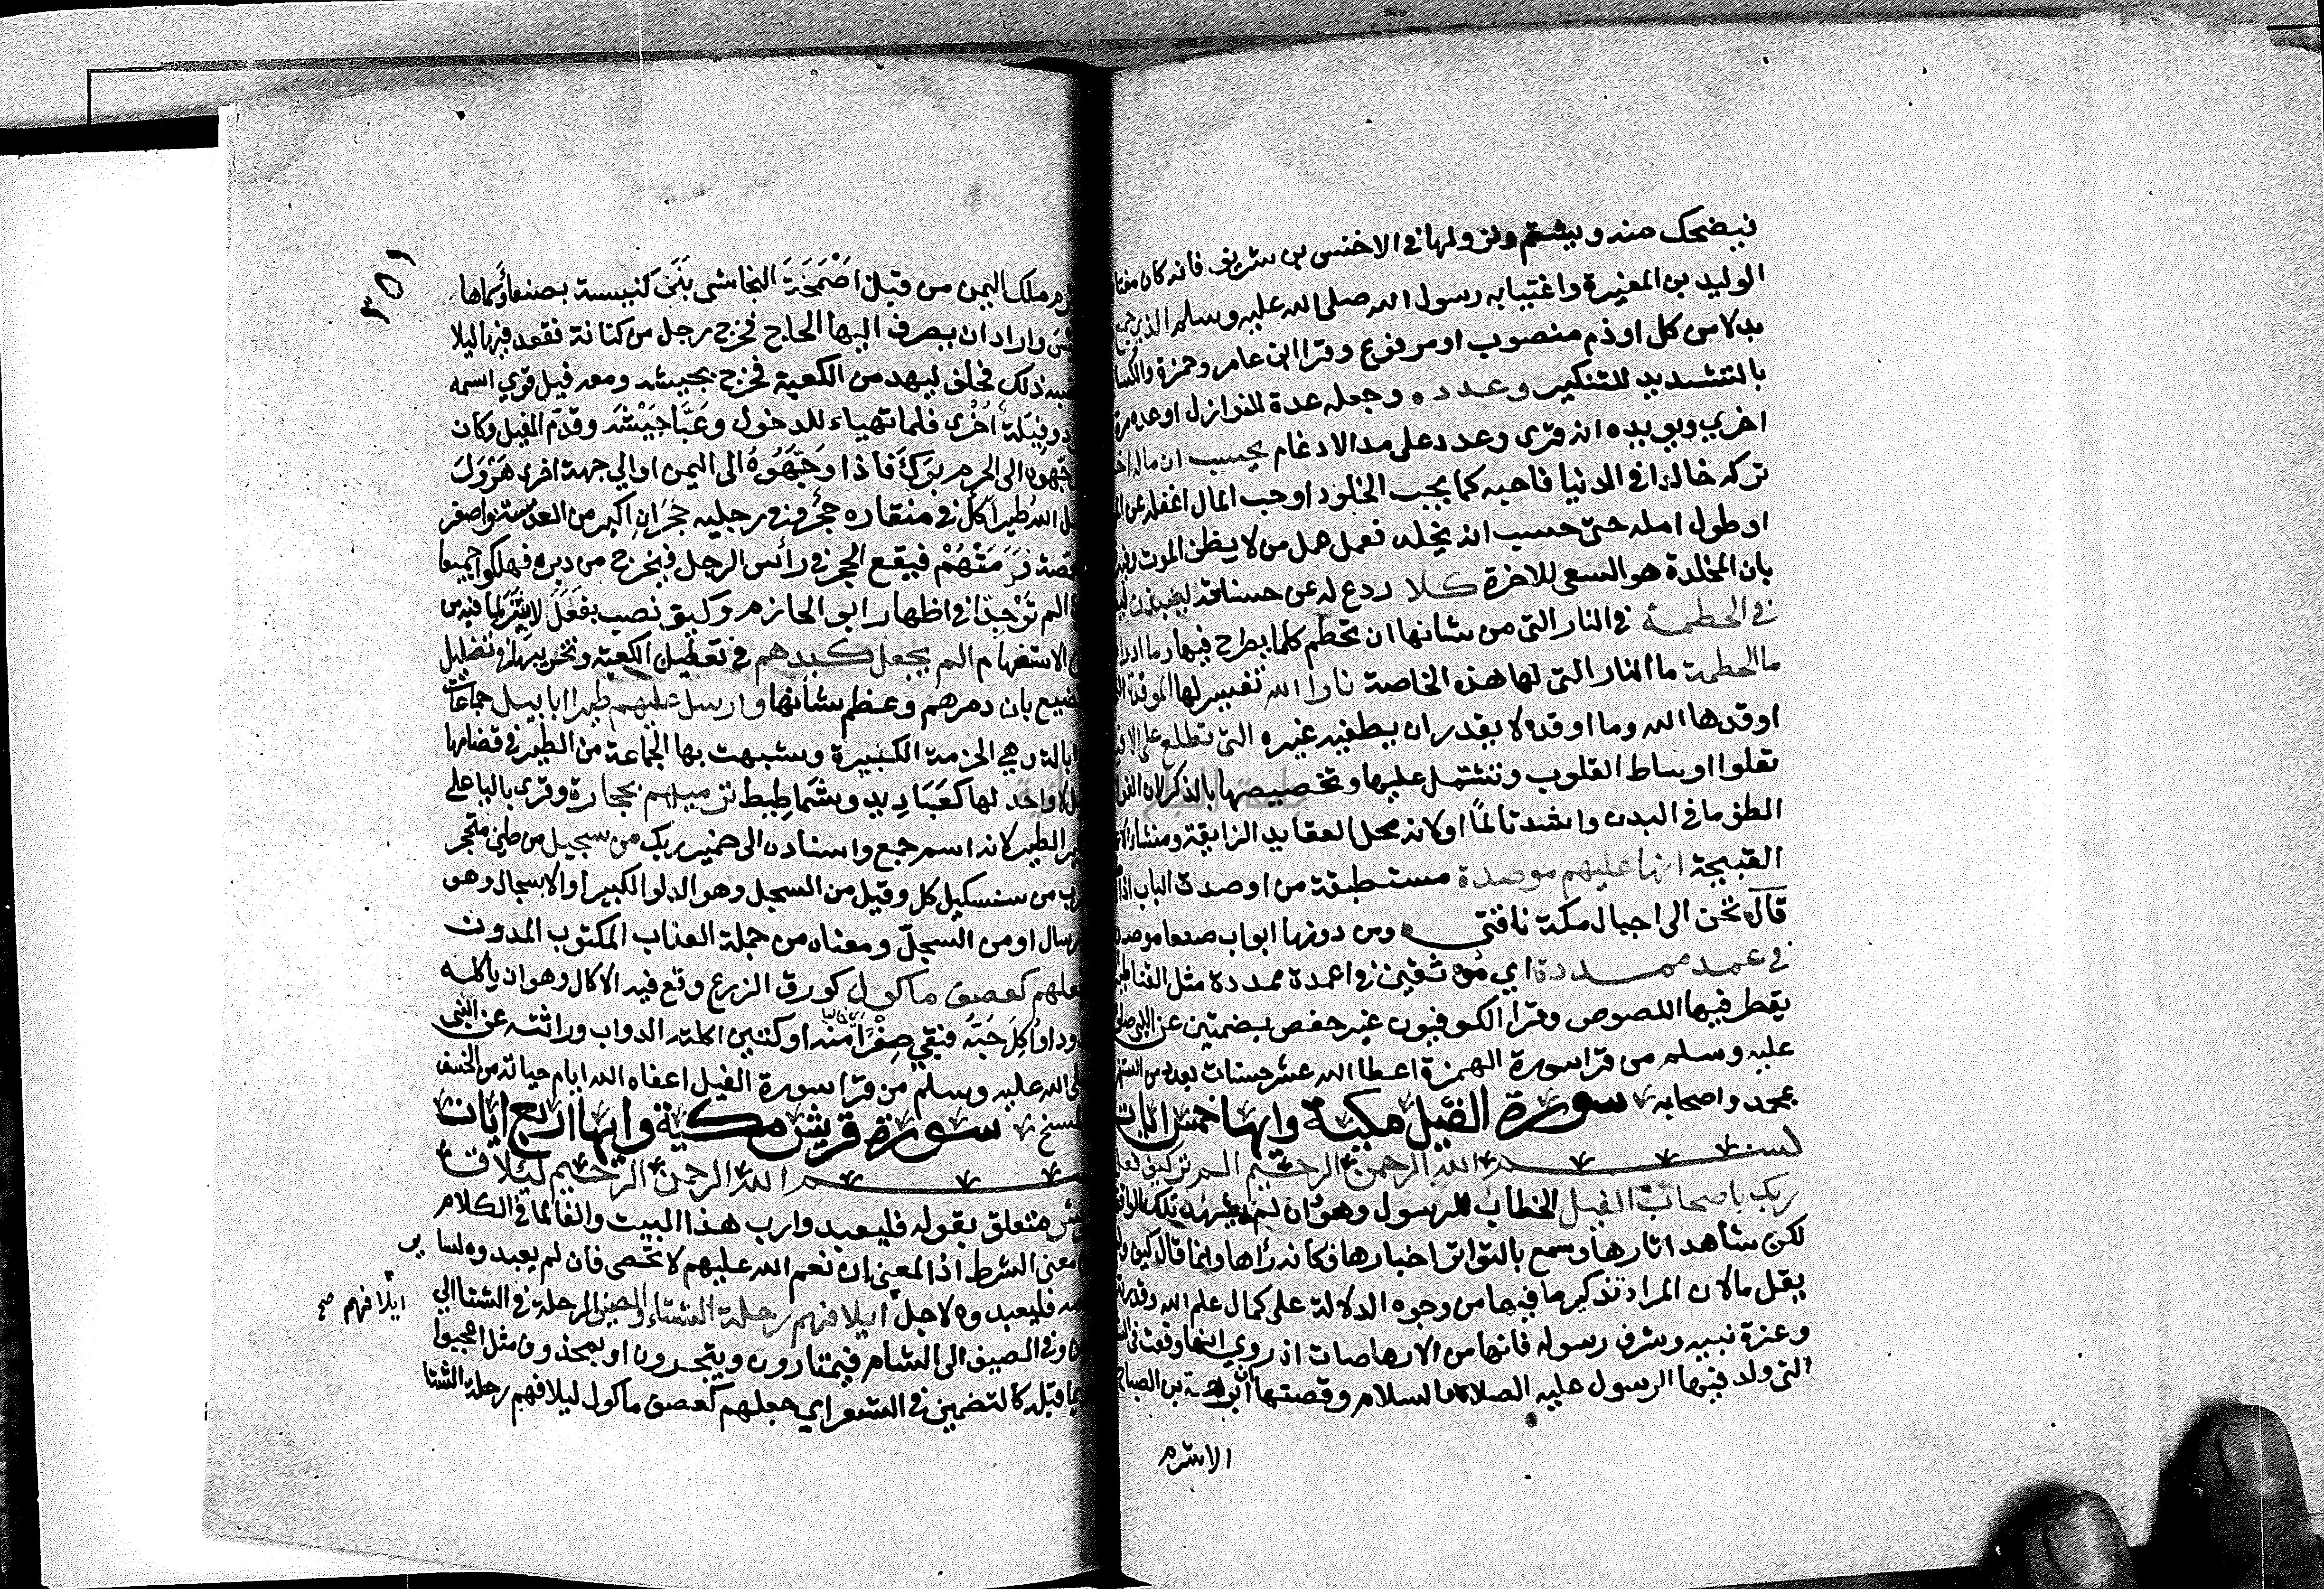 فيضحك منه ويشتم ونزولها في الاخنس بن شريق فانه كان مغتابا
الوليد بن المغيرة واغتيابه رسول الله صلى الله عليه وسلم الذي جمع
بدلا من كل اوذم منصوب او مرفوع وقرا ابن عامر وحمزة والكسا
بالتشديد للتكثير وعدده وجعله عدة للنوازل او عده مرة
اخري ويويده انه قرى وعدده على مد الادغام يحسب ان ماله اخـ
تركه خالدا في الدنيا فاحبه كما يحب الخلود او حب المال اغفله عن الـ
او طول امله حتى حسب انه يخلد فعمل عمل من لا يظن الموت وفيه
بان المخلدة هو السعي للاخرة كلا ردع له عن حسبانه لينبذن
في الحطمة في النار التى من شانها ان تحطم كلما يطرح فيها وما ادرا
ما الحطمة ما النار التى لها هذه الخاصة نار الله تفسير لها الموقدة
اوقدها الله وما اوقده لا يقدر ان يطفيه غيره التى تطلع على الافـ
تعلوا اوساط القلوب وتشتمل عليها وتخصيصها بالذكر لان الفوا
الطف ما في البدن واشد تالما او لانه محل العقايد الزايفة ومنشاء الاع
القبيحة انها عليهم موصدة مستطبقة من اوصدت الباب اذا
قال تحن الى اجبال مكة ناقتي ومن دونها ابواب صنعا موصدة
في عمد ممددة اي موثقين في اعمدة ممددة مثل المقاطر
يقطر فيها اللصوص وقرا الكوفيون غير حفص بضمتين عن النبي صلى
عليه وسلم من قرا سورة الهمزة اعطا الله عشر حسنات بعدد من استهز
بمحمد واصحابه سورة الفيل مكية وايها خمس ايات
بسم الله الرحمن الرحيم الم تر كيف فعل
ربك باصحاب الفيل الخطاب للرسول وهو وان لم يشهد تلك الواقـ
لكن شاهد اثارها وسمع بالتواتر اخبارها فكانه رأها وانما قال كيف ولم
يقل ما لان المراد تذكير ما فيها من وجوه الدلالة على كمال علم الله وقدرته
وعزة نبيه وشرف رسوله فانها من الارهاصات اذ روي انها وقعت في السـ
التى ولد فيها الرسول عليه الصلاة والسلام وقصتها ان ابرهة بن الصباح
الاشرم
٣٥١
الاشرم ملك اليمن من قبل اصحمة النجاشى بنى كنيسة بصنعا وسماها
القليس واراد ان يصرف اليها الحاج فخرج رجل من كنانة فقعد فيها ليلا
فاغضبه ذلك فحلف ليهدمن الكعبة فخرج بجيشه ومعه فيل قوي اسمه
محمود وفيلة اخرى فلما تهياء للدخول وعبا جيشه وقدم الفيل وكان
كلما وجهوه الى الحرم برك فاذا وجهوه الى اليمن او الي جهة اخرى هرول
فارسل الله طيرا كل في منقاره حجر وفي رجليه حجران اكبر من العدسة واصغر
من الحمصة فرمتهم فيقع الحجر في رائس الرجل فيخرج من دبره فهلكوا جميعا
وقرئ الم تر جدا في اظهار اثر الجازم وكيف نصب بفعل لا بتر لما فيه من
معنى الاستفهام الم يجعل كيدهم في تعطيل الكعبة وتخريبها في تضليل
تضييع بان دمرهم وعظم شأنها وارسل عليهم طيرا ابابيل جماعات
جمع ابالة وهي الحزمة الكبيرة وشبهت بها الجماعة من الطير في تضامها
وقيل لا واحد لها كعباديد وشماطيط ترميهم بحجارة وقرى باليا على
تذكير الطير لانه اسم جمع واسناده الى ضمير ربك من سجيل من طين متحجر
معرب من سنككيل كل وقيل من السجل وهو الدلو الكبير او الاسجال وهو
الارسال او من السجل ومعناه من جملة العذاب المكتوب المدون
فجعلهم كعصف ماكول كورق الزرع وقع فيه الاكال وهو ان ياكله
الدود او اكل حبه فبقي صفرا منه او كتبن اكلته الدواب وراثته عن النبى
صلى الله عليه وسلم من قرا سورة الفيل اعفاه الله ايام حياته من الخسف
والمسخ سورة قريش مكية وايها اربع ايات
بسم الله الرحمن الرحيم لئلاف
قريش متعلق بقوله فليعبدوا رب هذا البيت والفا لما في الكلام
من معنى الشرط اذ المعنى ان نعم الله عليهم لا تحصى فان لم يعبدوه لساير
نعمه فليعبدوه لاجل ايلافهم رحلة الشتاء والصيف الرحلة في الشتا الي
ايلافهم صح
اليمن وفي الصيف الى الشام فيمتارون ويتجرون او بمحذوف مثل اعجبوا
او بما قبله كالتضمين في الشعر اي جعلهم كعصف ماكول ليلافهم رحلة الشتا